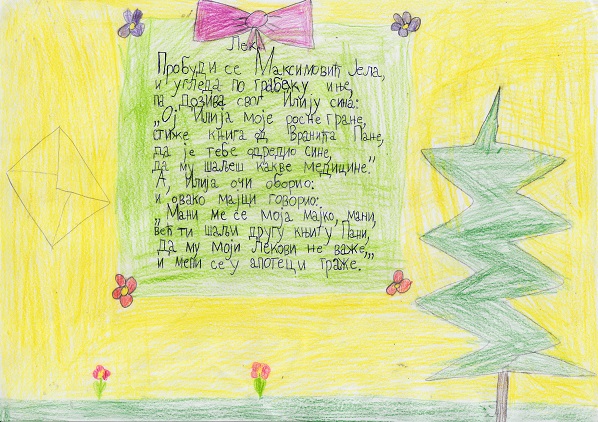 Лек
Пробуди се Максимовић Јела,
и угледа по грабежу иње,
па дозива свог Илију сина:
„Ој Илија моје росне гране,
стиже књига од Вранића Пане,
да је тебе одредио сине,
да му шаљеш какве медицине."
А, Илија очи оборио:
и овако мајци говорио:
„Мани ме се моја мајко, мани,
већ ти шаљи другу књигу Пани,
Да му моји лекови не важе,„
и мени се у апотеци траже.